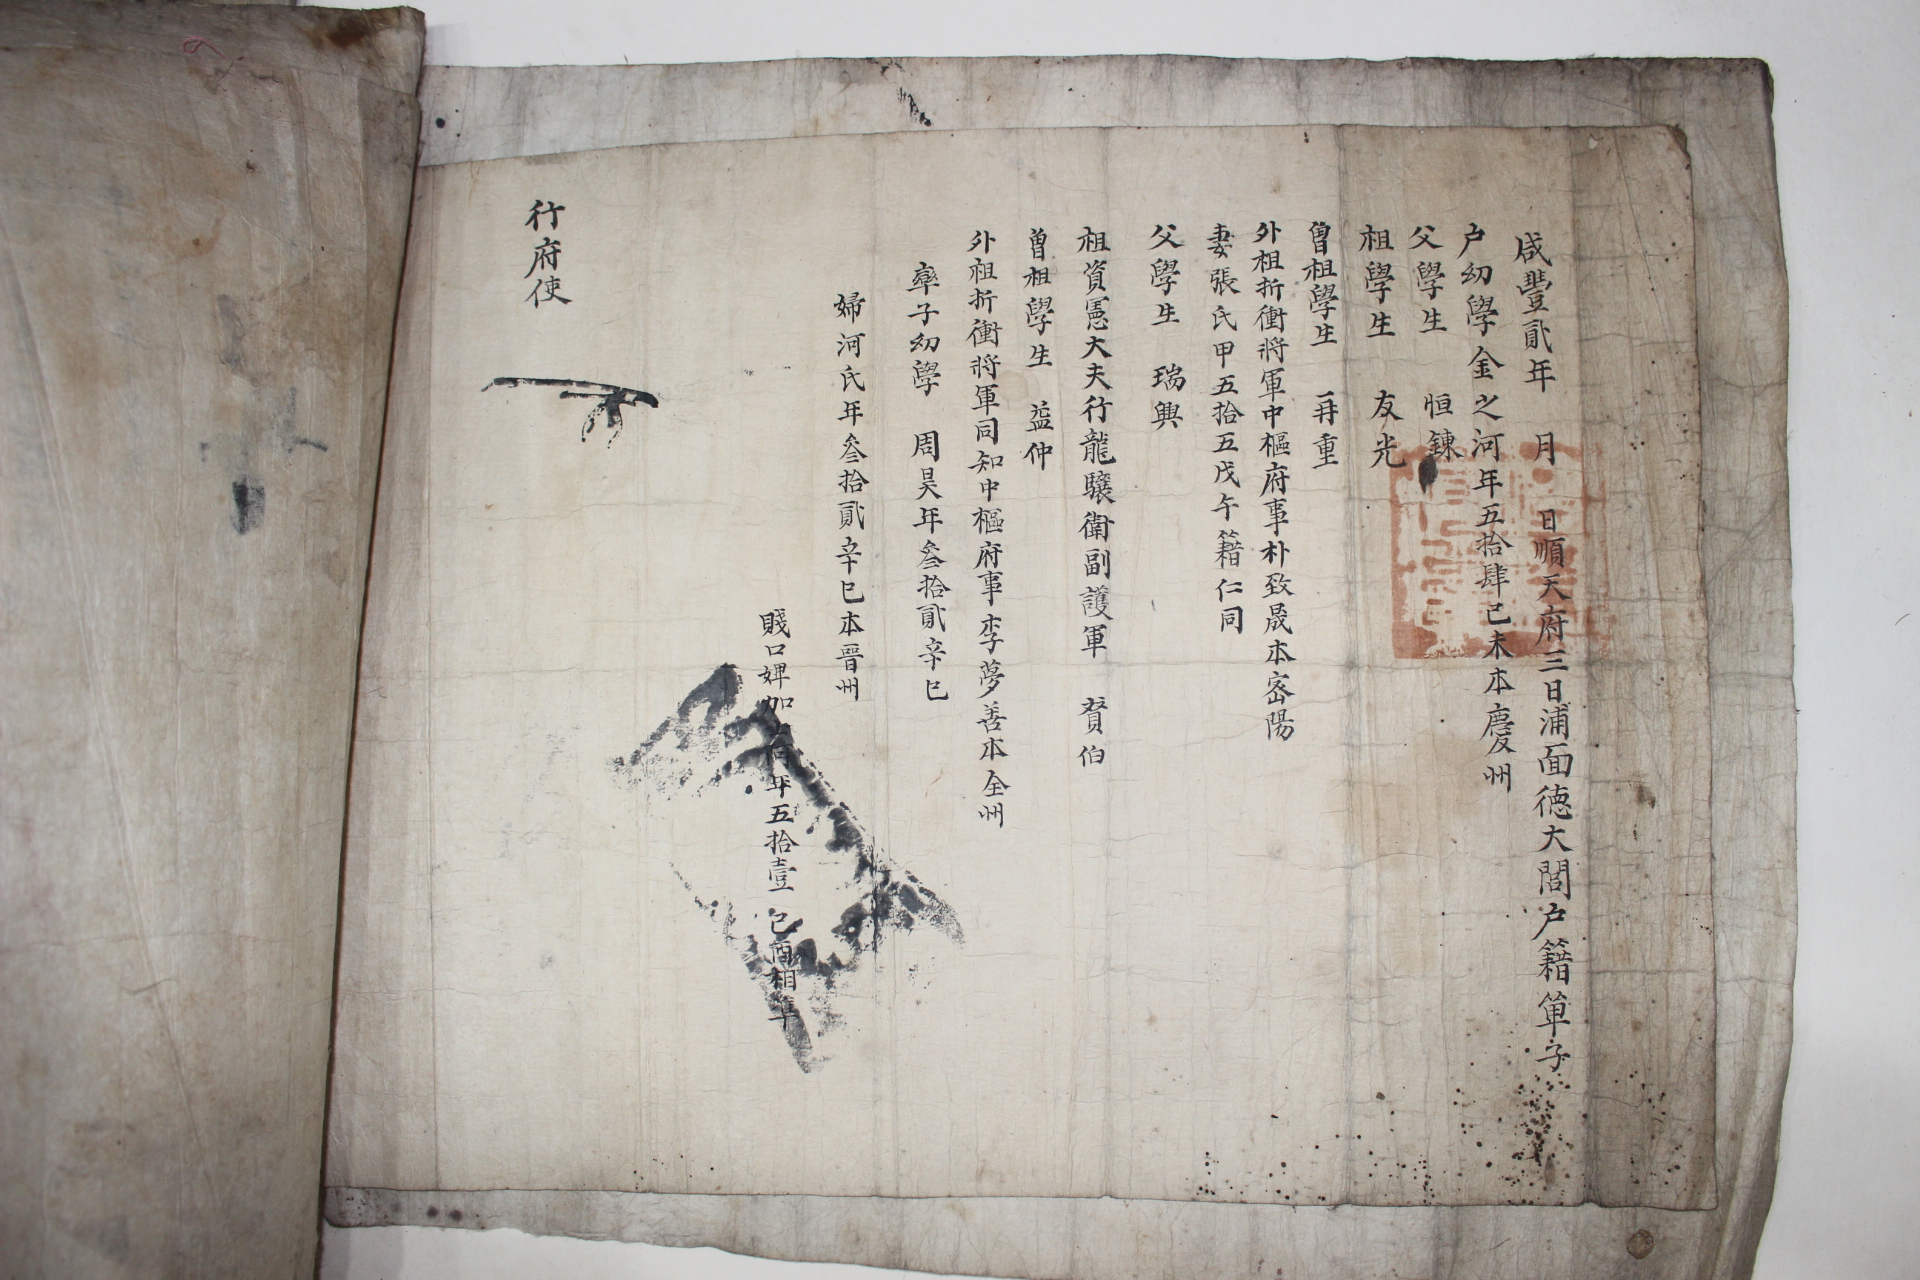 咸豐貳年 月 日順天府三日浦面德大閭户籍單子
户幼學金之河年五拾肆己未本慶州
父學生 恒鍊
祖學生 友光
曾祖學生 再重
外祖折衝將軍中樞府事朴致晟本密陽
妻張氏甲五拾五戊午籍仁同
父學生 瑞興
祖資憲大夫行龍驤衛副護軍 賚伯
曾祖學生 益仲
外祖折衝將軍同知中樞府事李夢善本全州
率子幼學 周昊年叄拾貳辛巳
婦河氏年叄拾貳辛巳本晋州
賤口婢加 年五拾壹 己酉相準
行府使